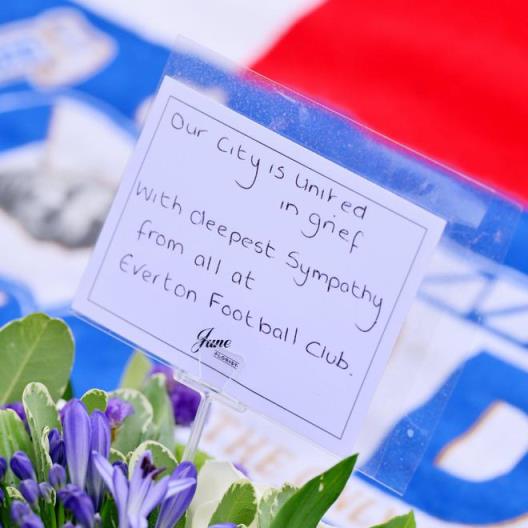 Our City is United
in grief
With deepest Sympathy
from all at
Everton Football Club.
Jane
FLORIST
THE ONLY